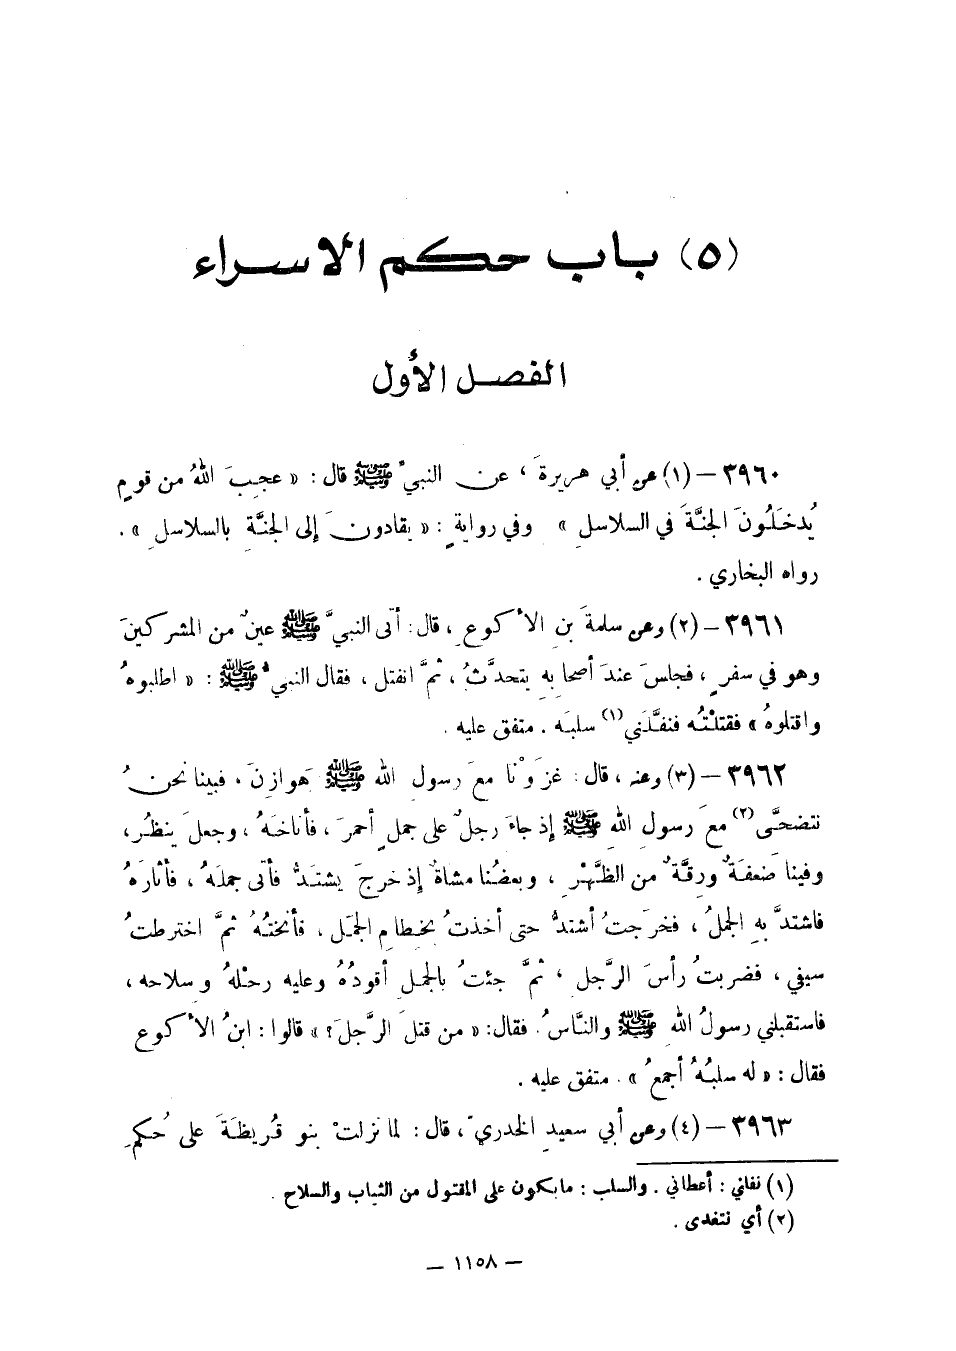 (٥) باب حكم الاسراء
الفصل الأول
٣٩٦٠ – (١) عن أبي هريرةَ ، عن النبيِّ ﷺ قال : « عجِبَ اللهُ من قومٍ
يُدخَلُونَ الجنَّةَ في السلاسلِ » وفي روايةٍ : « يقادونَ إلى الجنَّةِ بالسلاسلِ » .
رواه البخاري .
٣٩٦١ – (٢) وعن سلمةَ بنِ الأكوعِ ، قال : أتى النبيَّ ﷺ عينٌ من المشركينَ
وهو في سفرٍ ، فجلسَ عندَ أصحابهِ يتحدَّثُ ، ثمَّ انفتل ، فقال النبيُّ ﷺ : « اطلبوهُ
واقتلوهُ » فقتلْتُه فنفَّلَني(١) سلبَه . متفق عليه .
٣٩٦٢ – (٣) وعنه ، قال : غزَوْنا معَ رسولِ الله ﷺ هَوازِنَ ، فبينا نحنُ
نتضحَّى(٢) معَ رسولِ اللهِ ﷺ إذ جاءَ رجلٌ على جملٍ أحمرَ ، فأناخَهُ ، وجعلَ ينظُر ،
وفينا ضَعفَةٌ ورِقَّةٌ من الظَّهْرِ ، وبعضُنا مشاةٌ إذ خرجَ يشتدُّ فأتى جملَهُ ، فأثارَهُ
فاشتدَّ بهِ الجملُ ، فخرَجتُ أشتدُّ حتى أخذتُ بخطامِ الجمَلِ ، فأنختُهُ ثمَّ اخترطتُ
سيفي ، فضربتُ رأسَ الرَّجلِ ، ثمَّ جئتُ بالجملِ أقودُهُ وعليه رحْلهُ وسلاحه ،
فاستقبلني رسولُ اللهِ ﷺ والنَّاسُ . فقال : « من قتلَ الرَّجلَ ؟ » قالوا : ابنُ الأكوع
فقال : « له سلبُهُ أجمعُ » . متفق عليه .
٣٩٦٣ – (٤) وعن أبي سعيدٍ الخدريِّ ، قال : لما نزلتْ بنو قُريظَةَ على حُكمِ
(١) نفلني : أعطاني . والسلب : ما يكون على المقتول من الثياب والسلاح .
(٢) أي نتغدى .
– ١١٥٨ –